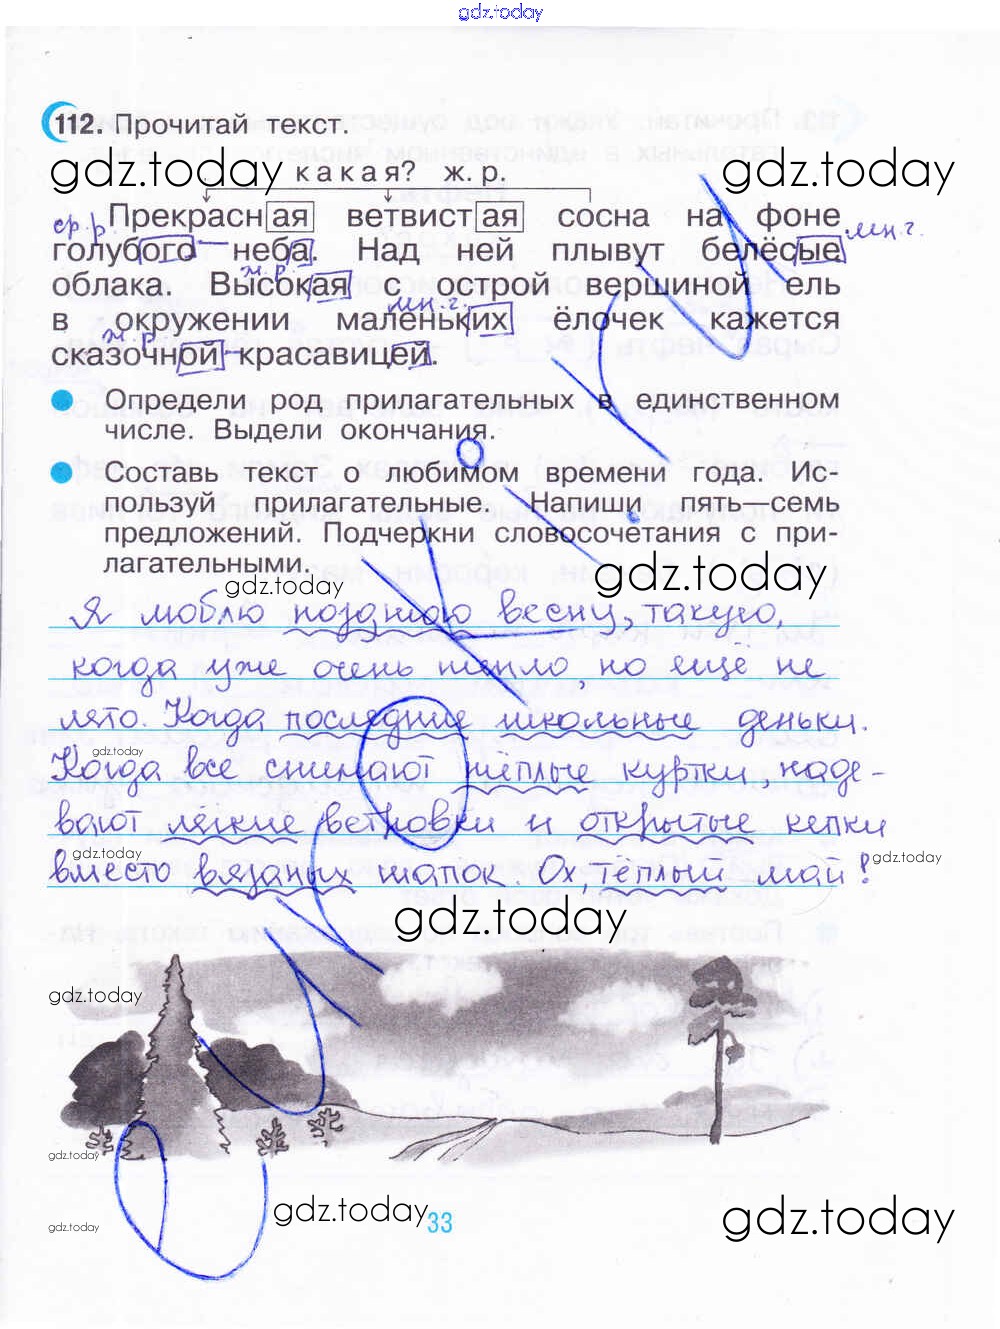 gdz.today
112. Прочитай текст.
gdz.today gdz.today
какая? ж. р.
Прекрасная ветвистая сосна на фоне
ср. р. мн. ч.
голубого неба. Над ней плывут белёсые
ж. р.
облака. Высокая с острой вершиной ель
мн. ч.
в окружении маленьких ёлочек кажется
ж. р.
сказочной красавицей.
Определи род прилагательных в единственном
числе. Выдели окончания.
Составь текст о любимом времени года. Ис-
пользуй прилагательные. Напиши пять—семь
предложений. Подчеркни словосочетания с при-
лагательными.
gdz.today gdz.today
Я люблю позднюю весну, такую,
когда уже очень тепло, но ещё не
лето. Когда последние школьные деньки.
gdz.today
Когда все снимают тёплые куртки, наде-
вают лёгкие ветровки и открытые кепки
gdz.today gdz.today
вместо вязаных шапок. Ох, тёплый май!
gdz.today
gdz.today
gdz.today
gdz.today 33 gdz.today
gdz.today